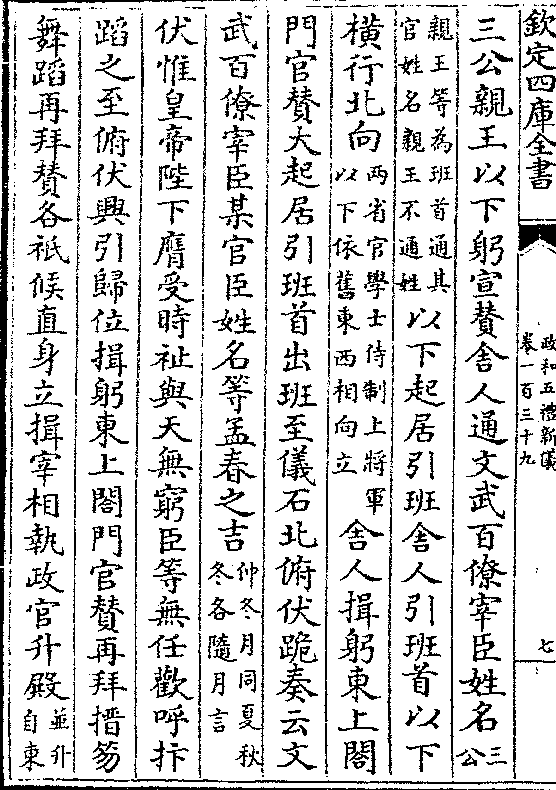 欽定四庫全書
政和五禮新儀
卷一百三十九
七
三公親王以下躬宣贊舎人通文武百僚宰臣姓名三公
親王等為班首通其官姓名親王不通姓以下起居引班舎人引班首以下
橫行北向兩省官學士待制上將軍以下依舊東西相向立舎人揖躬東上閤
門官贊大起居引班首出班至儀石北俯伏跪奏云文
武百僚宰臣某官臣姓名等孟春之吉仲冬月同夏秋冬各隨月言
伏惟皇帝陛下膺受時祉與天無窮臣等無任歡呼抃
蹈之至俯伏興引歸位揖躬東上閤門官贊再拜搢笏
舞蹈再拜贊各祇候直身立揖宰相執政官升殿並升自東